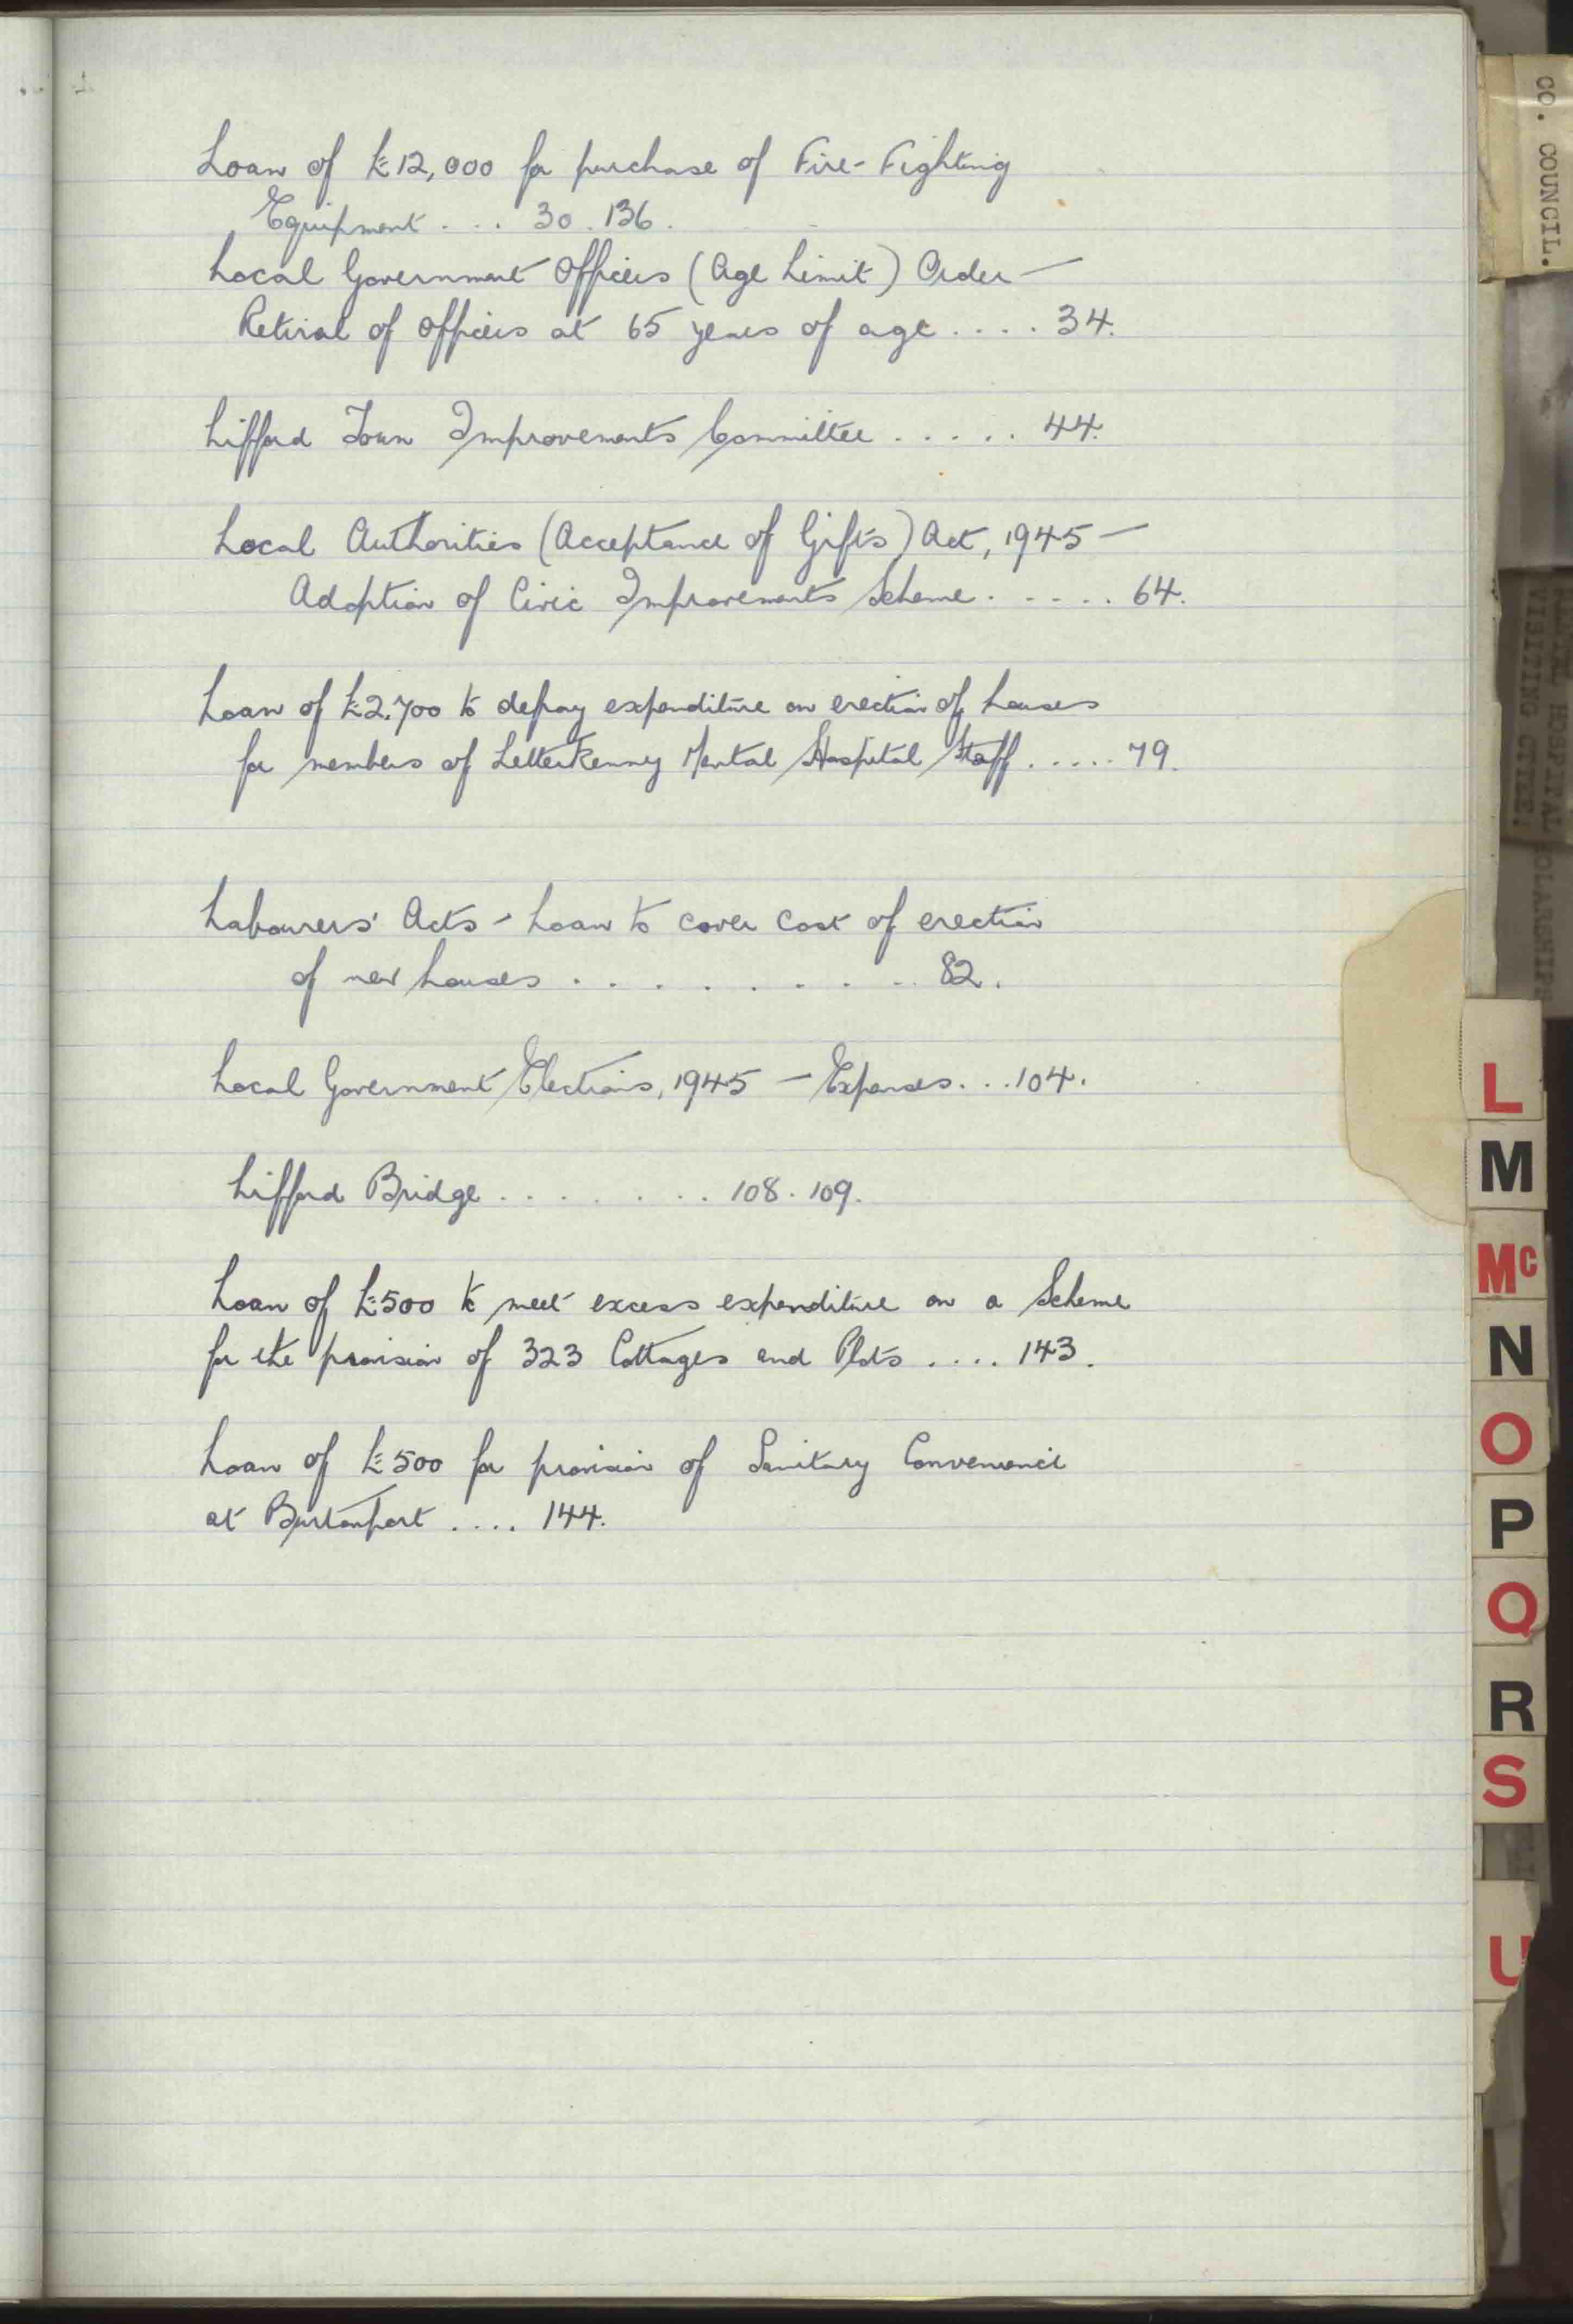 Loan of £12,000 for purchase of Fire-Fighting
Equipment .... 30. 136.
Local Government Officers (Age Limit) Order —
Retiral of Officers at 65 years of age .... 34.
Lifford Town Improvements Committee ...... 44.
Local Authorities (Acceptance of Gifts) Act, 1945 —
Adoption of Civic Improvements Scheme ..... 64.
Loan of £2,700 to defray expenditure on erection of houses
for members of Letterkenny Mental Hospital Staff ..... 79.
Labourers' Acts - Loan to cover cost of erection
of new houses ......... 82.
Local Government Elections, 1945 — Expenses... 104.
Lifford Bridge ........ 108. 109.
Loan of £500 to meet excess expenditure on a Scheme
for the provision of 323 Cottages and Plots .... 143.
Loan of £500 for provision of Sanitary Convenience
at Burtonport .... 144.
CO. COUNCIL.
HOSPITAL
VISITING CTTEE.
L
M
Mc
N
O
P
Q
R
S
U